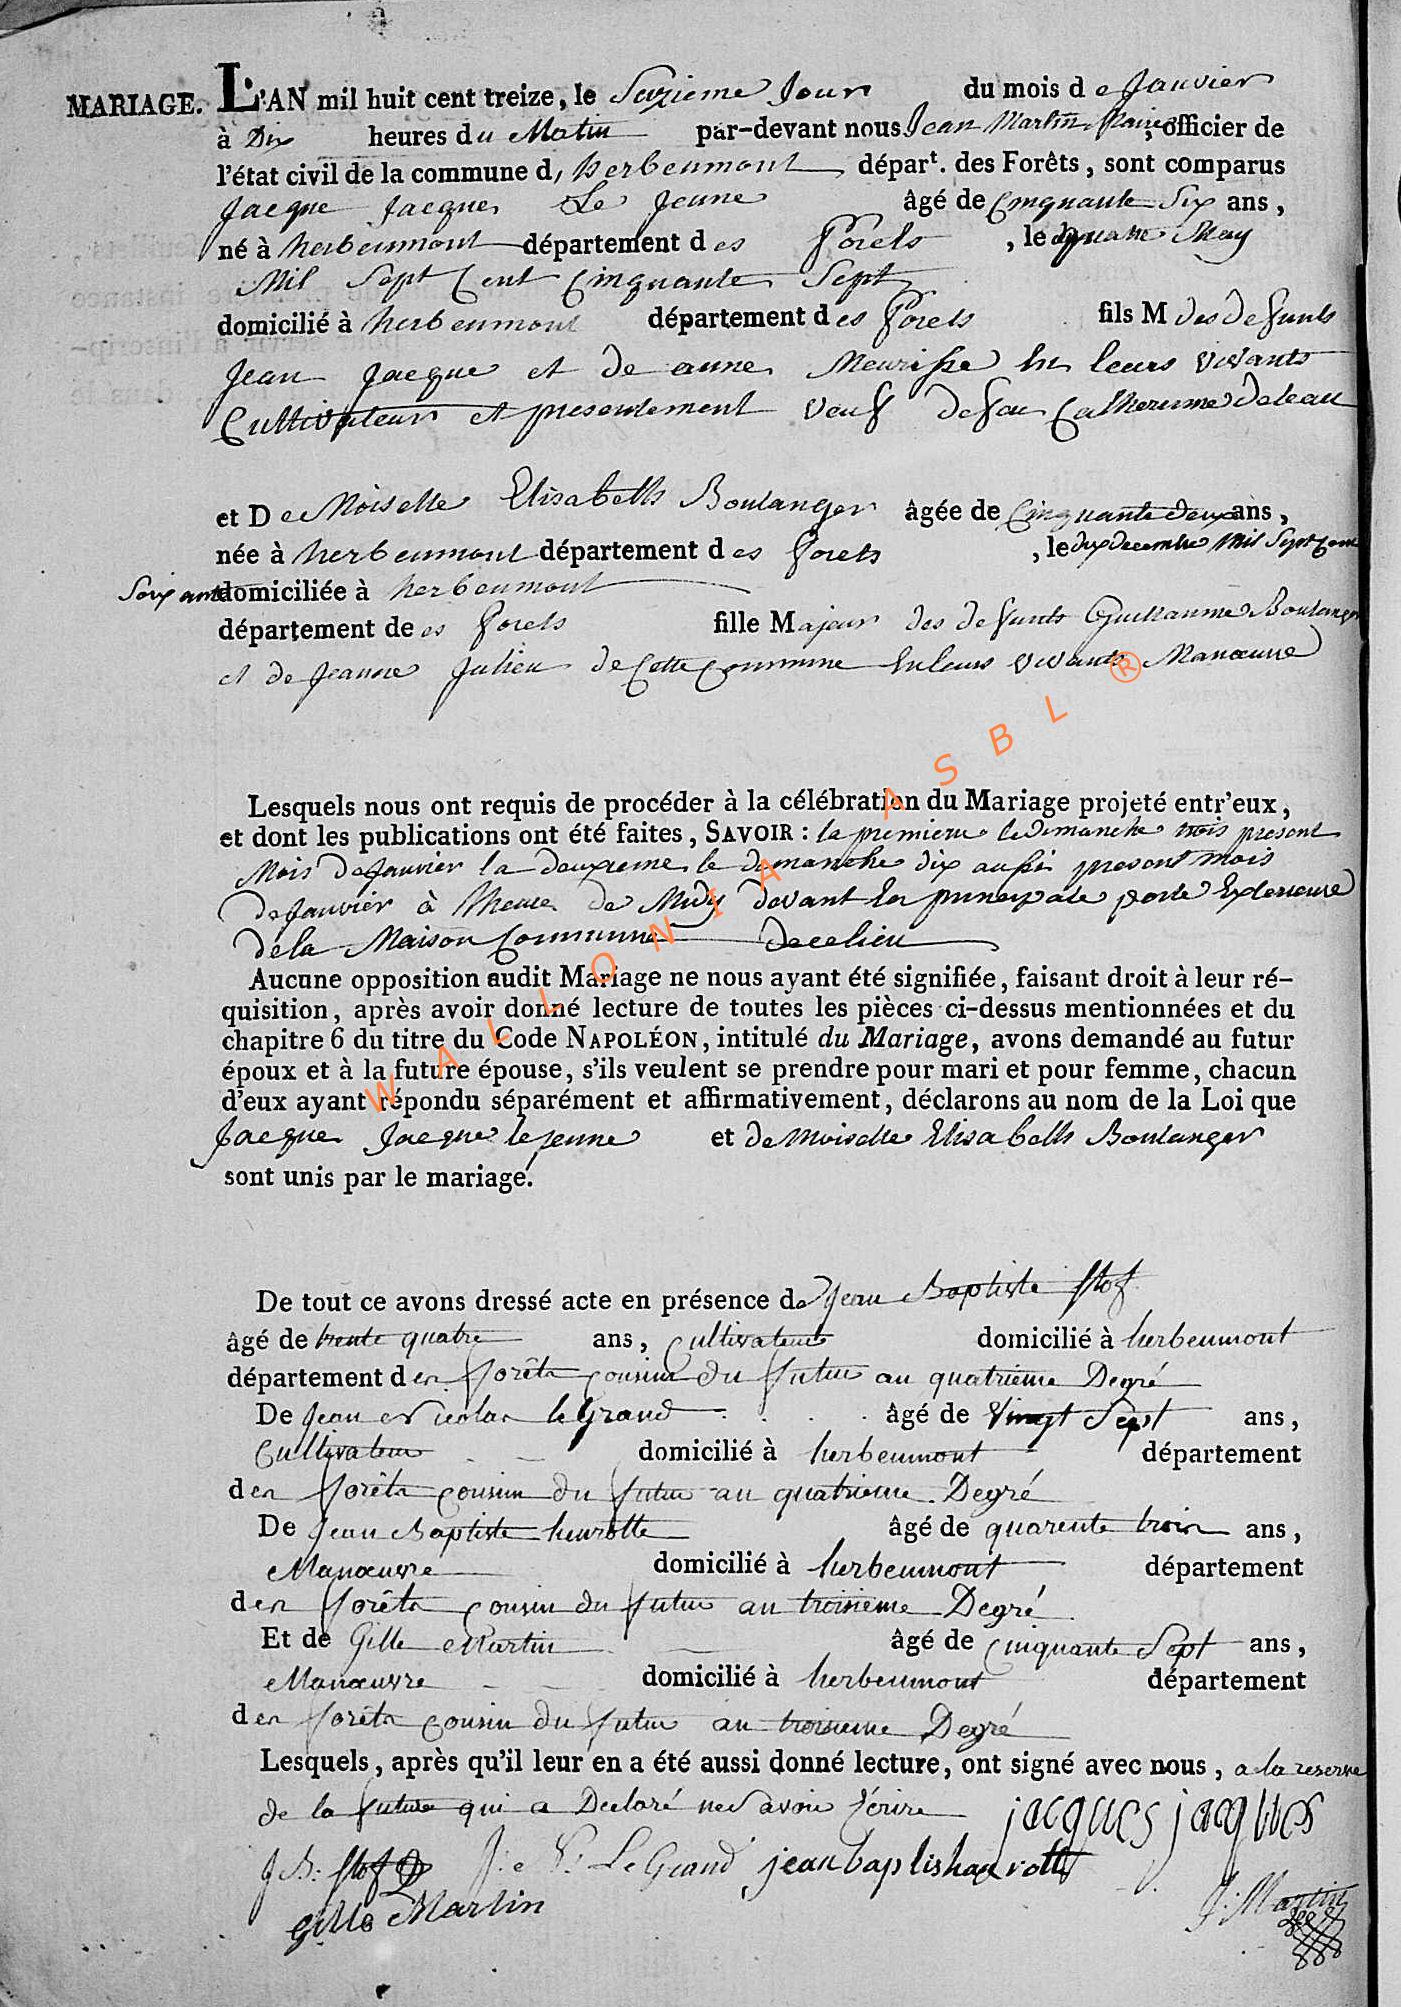 MARIAGE. L'AN mil huit cent treize, le Seizieme Jour du mois de Janvier
à Dix heures du Matin par-devant nous Jean Martin Maire, officier de
l'état civil de la commune d, herbeumont départ. des Forêts, sont comparus
Jacque Jacques Le Jeune âgé de Cinquante Six ans,
né à herbeumont département des Forets, le quatre May
Mil Sept Cent Cinquante Sept
domicilié à herbeumont département des Forets fils M des defunts
Jean Jacque et de anne Meurisse En leurs vivants
Cultivateur et presentement veuf defeu Catherinne deleau
et DeMoiselle Elisabeth Boulanger âgée de Cinquante deux ans,
née à herbeumont département des Forets, le dix decembre Mil Sept Cent
Soixante domiciliée à herbeumont
département de es Forets fille Majeur des defunts Guillaume Boulanger
et de Jeanne Julien de Cette Commune En leurs vivants Manœuvre
Lesquels nous ont requis de procéder à la célébration du Mariage projeté entr'eux,
et dont les publications ont été faites, SAVOIR : la premiere le dimanche trois present
Mois deJanvier la deuxieme le dimanche dix aussi present mois
deJanvier à l'heure de Midy devant la principale porte Exterieure
dela Maison Commune decelieu
Aucune opposition audit Mariage ne nous ayant été signifiée, faisant droit à leur ré-
quisition, après avoir donné lecture de toutes les pièces ci-dessus mentionnées et du
chapitre 6 du titre du Code NAPOLÉON, intitulé du Mariage, avons demandé au futur
époux et à la future épouse, s'ils veulent se prendre pour mari et pour femme, chacun
d'eux ayant répondu séparément et affirmativement, déclarons au nom de la Loi que
Jacque Jacque le jeune et deMoiselle Elisabeth Boulanger
sont unis par le mariage.
De tout ce avons dressé acte en présence de Jean Baptiste
âgé de trente quatre ans, Cultivateur domicilié à herbeumont
département des forêts cousin du futur au quatrieme Degré
De Jean Nicolas leGrand âgé de Vingt Sept ans,
Cultivateur domicilié à herbeumont département
des forêts cousin du futur au quatrieme Degré
De Jean Baptiste henrotte âgé de quarente trois ans,
Manœuvre domicilié à herbeumont département
des forêts cousin du futur au troisieme Degré
Et de Gille Martin âgé de Cinquante Sept ans,
Manœuvre domicilié à herbeumont département
des forêts cousin du futur au troisieme Degré
Lesquels, après qu'il leur en a été aussi donné lecture, ont signé avec nous, a la reserve
de la future qui a Declaré ne savoir Ecrire jacques jacques
J B: J: N: LeGrand jean baptis hanrotte
gille Martin J: Martin
WALLONIA ASBL ®